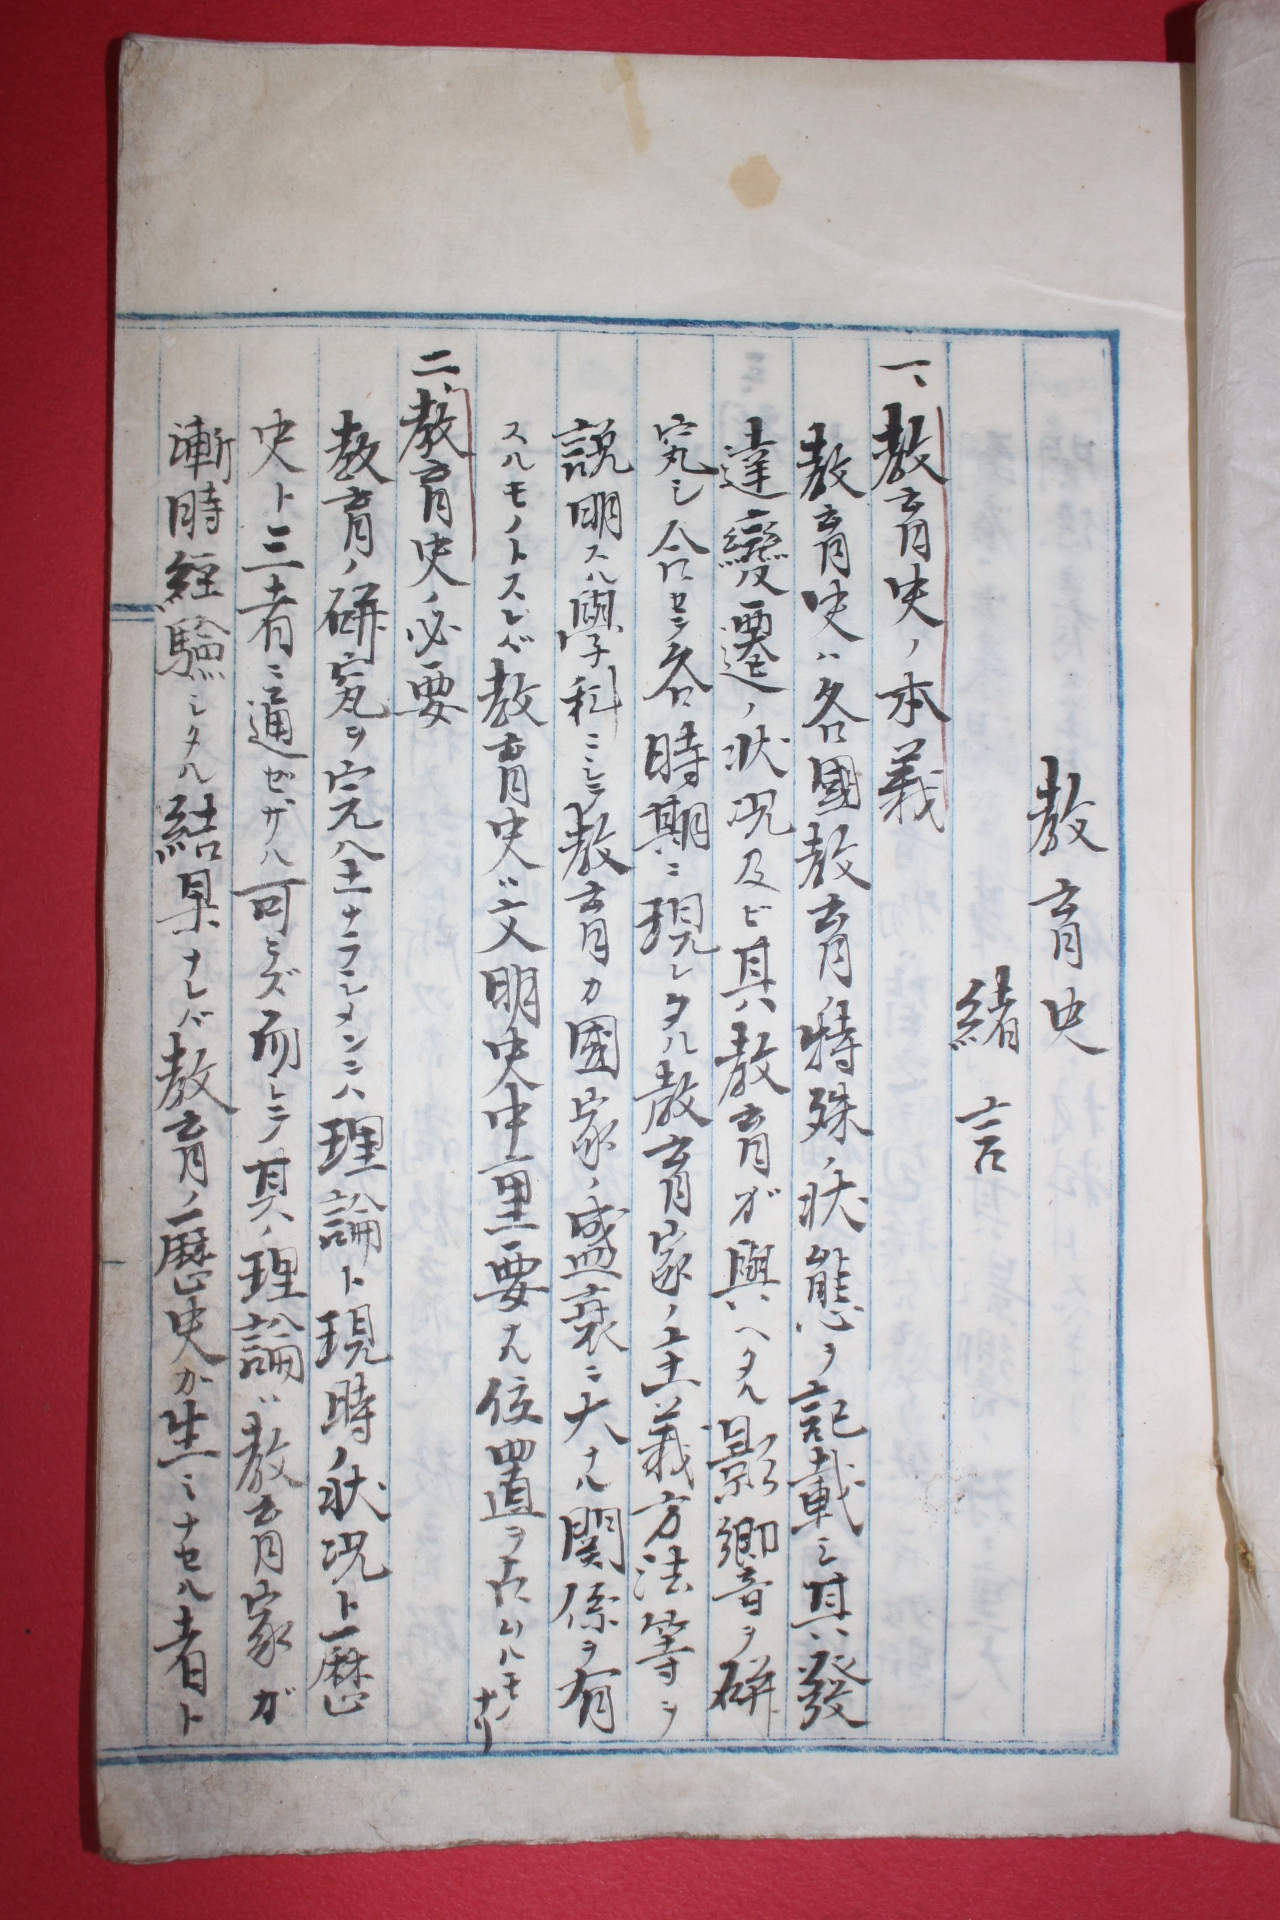 教育史
緒言
一、教育史ノ本義
教育史ハ各國教育特殊ノ状態ヲ記載シ其ノ發
達變遷ノ状况及ビ其教育ガ與ヘタル影響ヲ研
究シ合セテ各時期ニ現レタル教育家ノ主義方法等ヲ
説明スル學科ニシテ教育カ國家ノ盛衰ニ大ナル関係ヲ有
スルモノトスレバ教育史ハ文明史中重要ナル位置ヲ占ムルモノナリ
二、教育史ノ必要
教育ノ研究ヲ完全ナラシメンニハ理論ト現時ノ状况ト歴
史ト三者ニ通ゼザル可ラズ而シテ其ノ理論ハ教育家ガ
漸時経驗シタル結果ナレバ教育ノ歴史ガ生ミナセル者ト